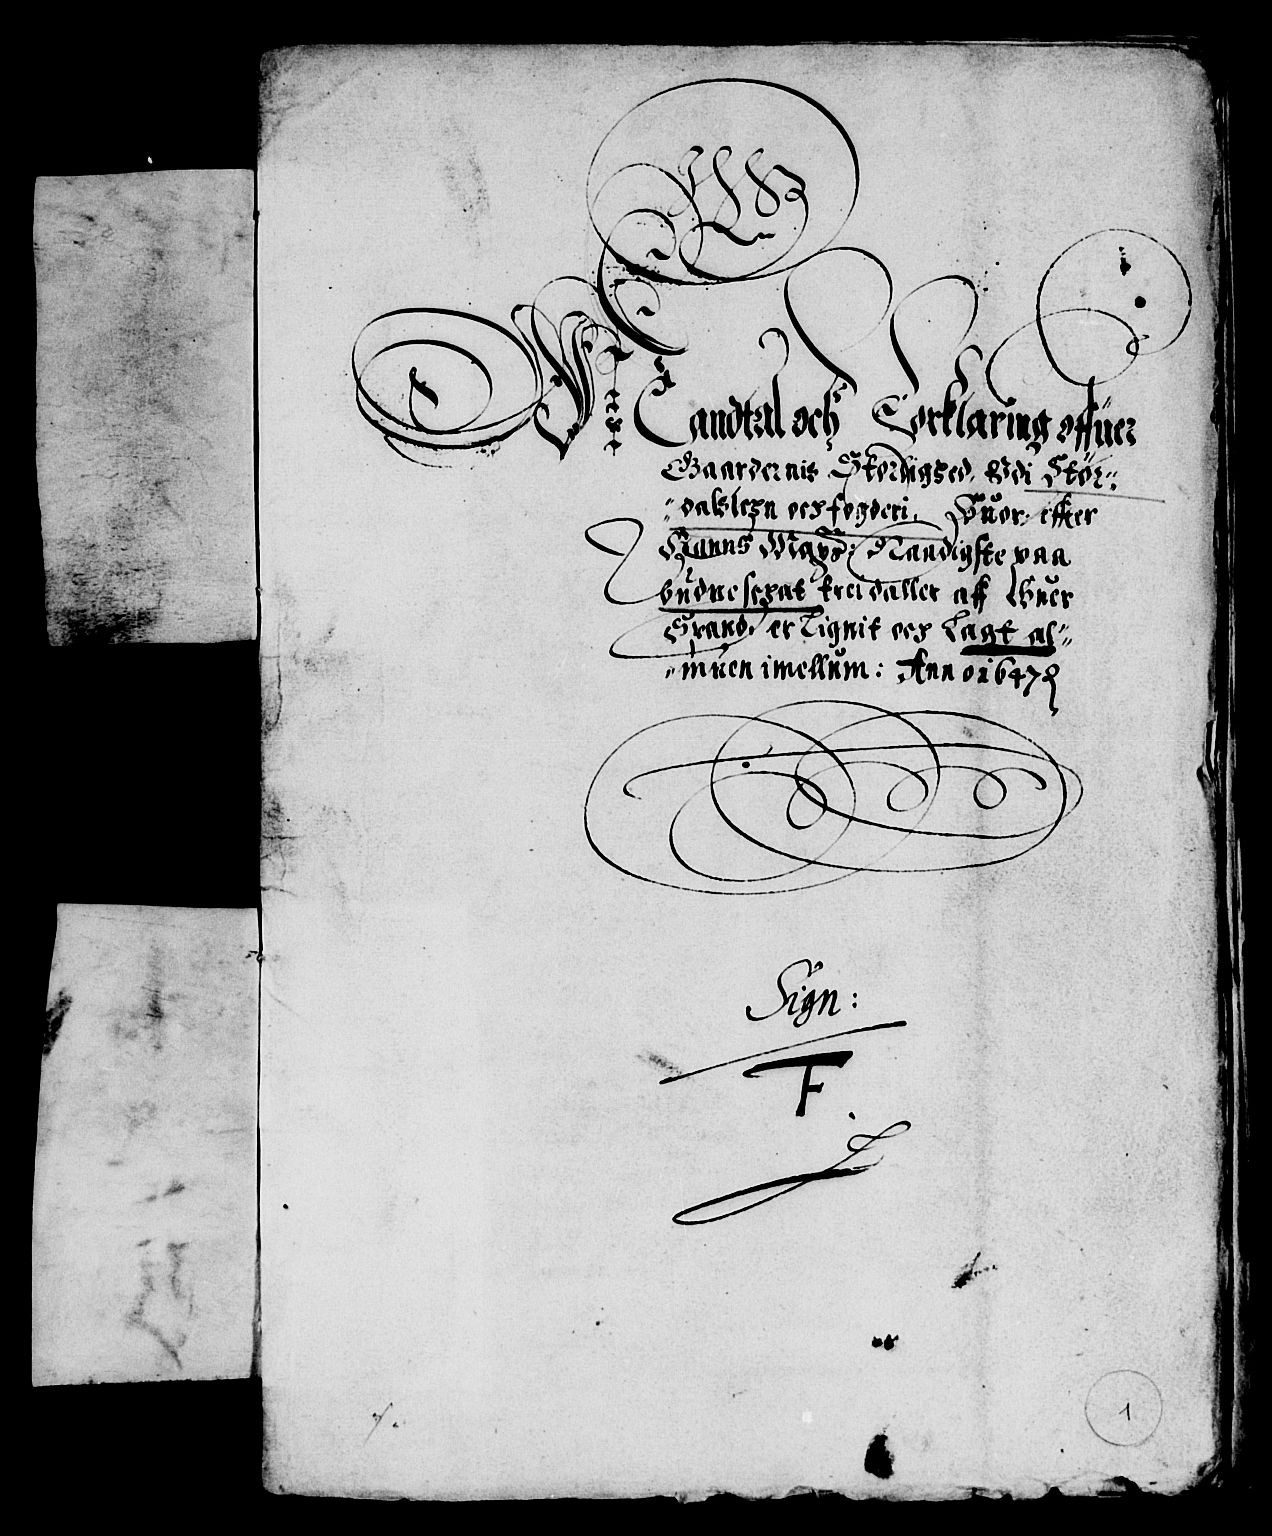 Mandtal och Forklaring offuer
Gaardernis Skyldighed. Udi Stør-
-dalslehn och fogderi. Huor effter
Hanns Mayz: Naadigste paa
budne sexat trei daller aff Huer
Grand, er Lignit och Lagt al-
-muen imellum: Anno 1647
Sign:
F
1